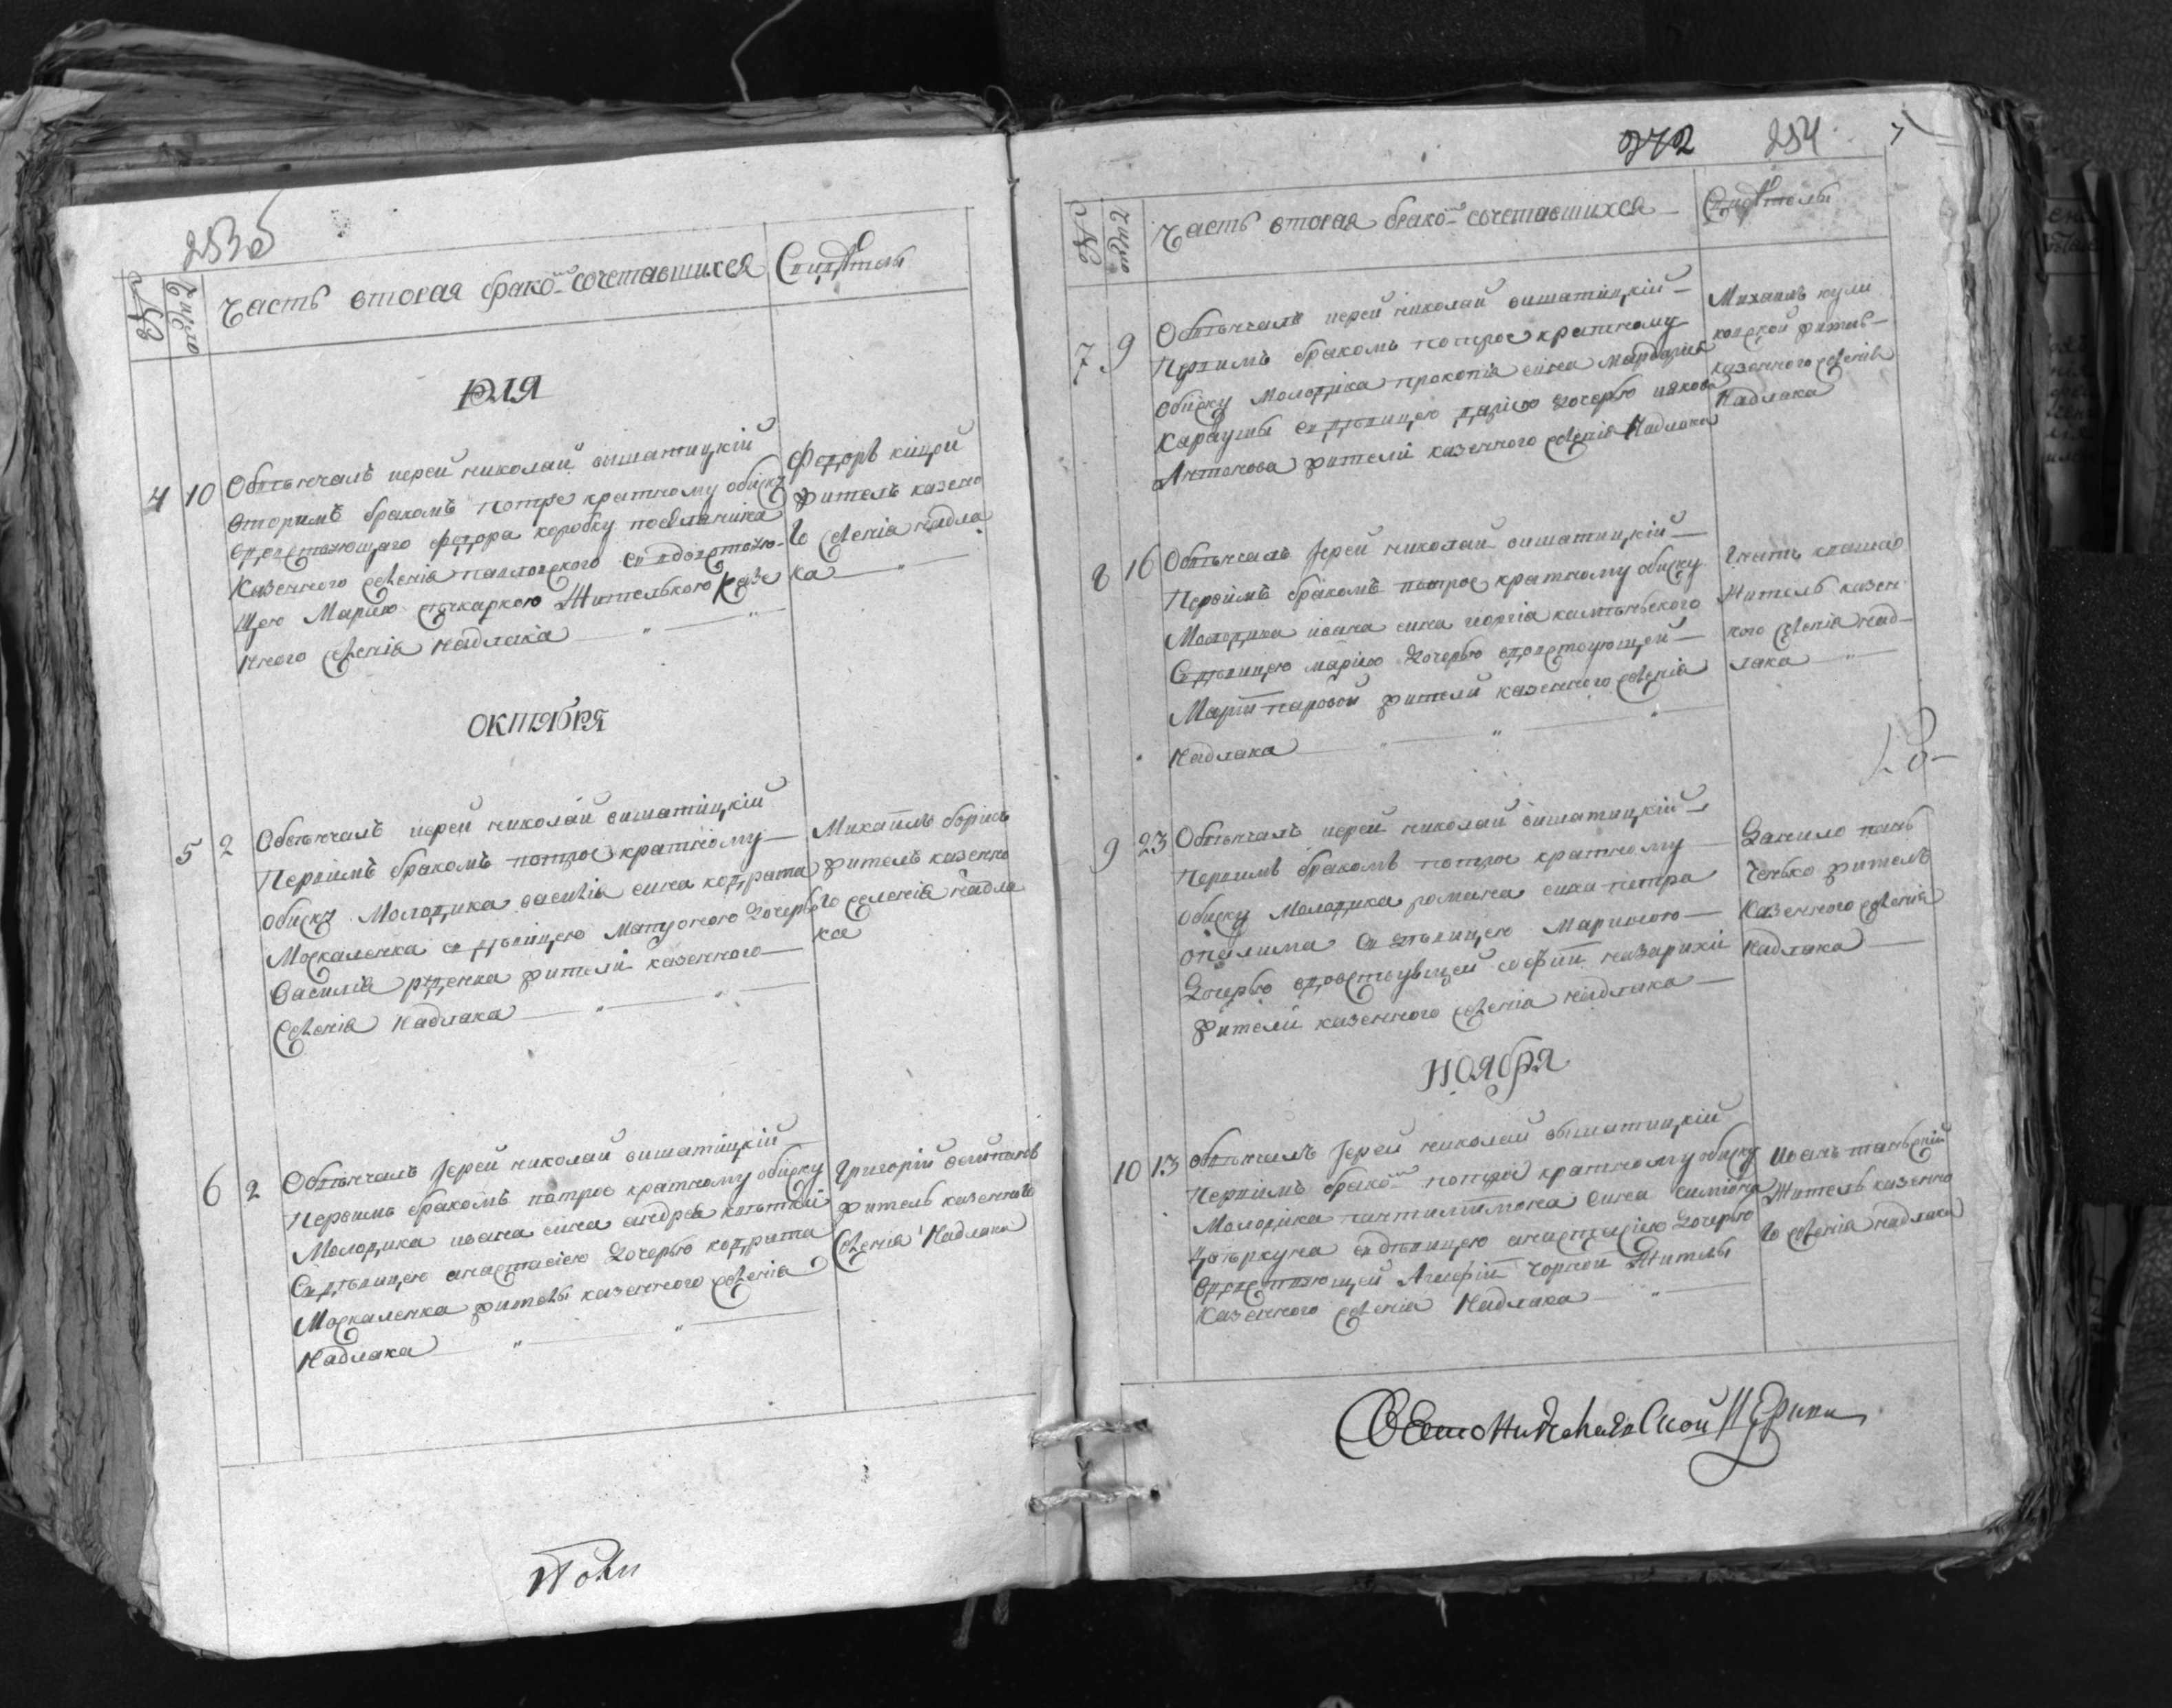 253б
№
число
Часть вторая брако сочетавшихся
Свидѣтели
Юля
4 10
Обвѣнчалъ иерей николай вишатицкій
вторимъ бракомъ потрое кратному обиску
вдовствующаго федора коробку поселяника
Казенного селенія павловского совдовствую
щею Мариею Жителькою Казе
нного селенія надлака
федоръ кицой
житель казено
го селенія надла
ка
октября
5 2
Обвѣнчалъ иерей николай вишатіцкій
Первимъ бракомъ потрое кратному
обиску Молодика василія сина кодрата
Москаленка сдѣвицею Матроною дочерью
Василія руденка жители казенного
Селенія надлака
Михаилъ борисъ
житель казенно
го селенія надла
ка
6 2
Обвѣнчалъ Іерей николай вишатіцкій
Первимъ бракомъ потрое кратному обиску
Молодика ивана сина андрея
Сдѣвицею анастасіею дочерью кодрата
Москаленка жители казенного селенія
Надлака
Григорій
житель казенного
Селенія Надлака
272 254
№
число
Часть вторая брако сочетавшихся
Свидѣтели
7 9
Обвѣнчалъ иерей николай вишатіцкій
Первимъ бракомъ потрое кратному
обиску Молодика прокопія сина мардарія
Караушы сдѣвицею даріею дочерью иякова
Антонова жители казенного селенія Надлака
Михаилъ кули
ковской житель
казенного селенія
Надлака
8 16
Обвѣнчалъ Іерей николай вишатицкій
Первимъ бракомъ потрое кратному обиску
Молодика ивана сина гіоргіа
Сдѣвицею маріею дочерью вдовствующей
Маріи жители казенного селенія
Надлака
Гнатъ
Житель казен
ного селенія над
лака
9 23
Обвѣнчалъ иерей николай вишатицкій
Первимъ бракомъ потрое кратному
обиску Молодика романа сина петра
опалима сдѣвицею Мариною
Дочерью вдовствующей софіи назарихи
жители казенного селенія надлака
Данило пань
ченько житель
Казенного селенія
надлака
Ноября
10 13
Обвѣнчалъ Іерей николай вышатицкій
Первимъ брако потрое кратному обиску
Молодика пантилимона сина симіона
сдѣвицею анастасіею дочерью
вдовствующей Агафіи чорной Жители
Казенного селенія Надлака
иванъ
Житель казенно
го селенія надлака